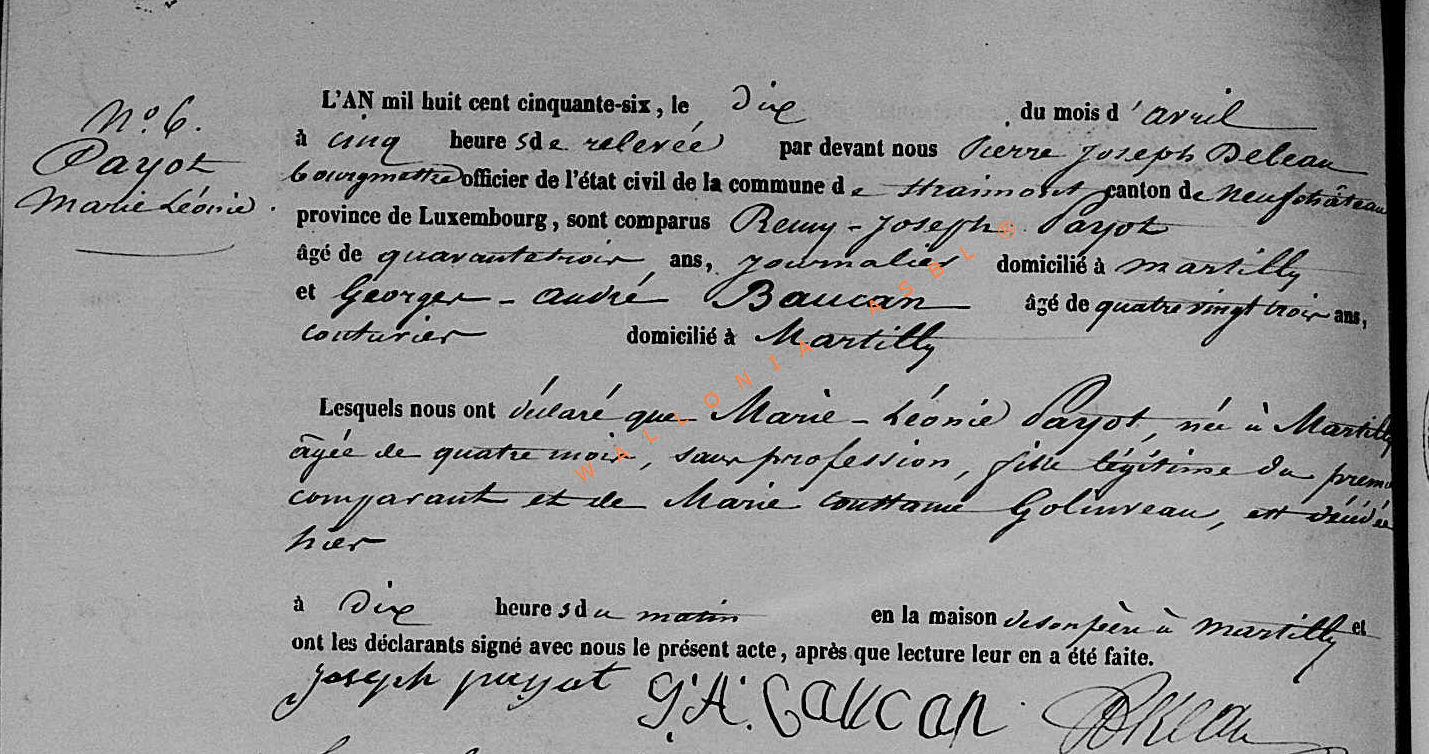 N.º 6.
Payot
Marie Léonie.
L'AN mil huit cent cinquante-six, le Dix du mois d'avril
à cinq heures de relevée par devant nous Pierre Joseph Deleau
bourgmestre officier de l'état civil de la commune de Straimont canton de Neufchâteau
province de Luxembourg, sont comparus Remy-Joseph Payot
âgé de quarante trois ans, journalier domicilié à Martilly
et Georges-André Baucan âgé de quatre vingt trois ans,
couturier domicilié à Martilly
Lesquels nous ont déclaré que Marie-Léonie Payot, née à Martilly
âgée de quatre mois, sans profession, fille légitime du premier
comparant et de Marie Constance Golinveau, est décédée
hier
à Dix heures du matin en la maison de son père à Martilly et
ont les déclarants signé avec nous le présent acte, après que lecture leur en a été faite.
Joseph payot G.A. Baucan Deleau
WALLONIA ASBL ®